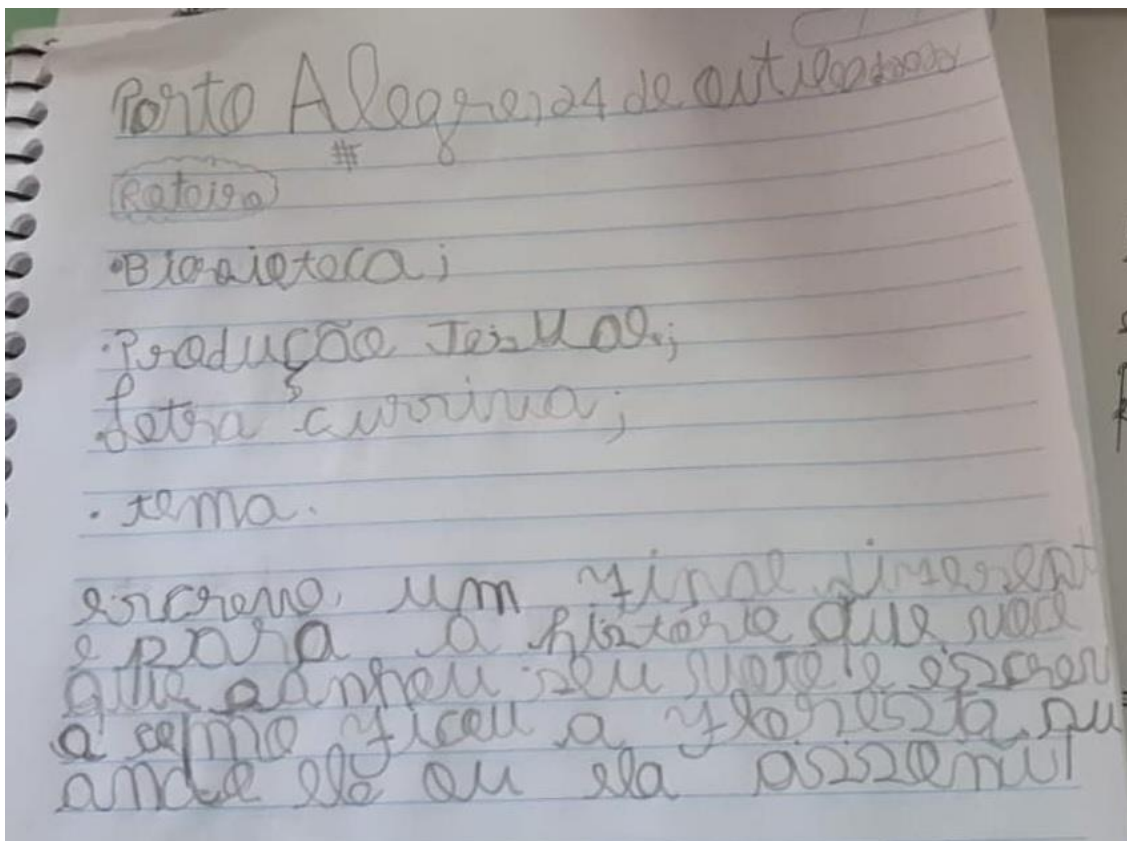 Porto Alegre, 24 de
Roteiro
•Biblioteca;
•Produção Textual;
•Letra cursiva;
•tema.
escreva um final diferent
e para a história que você
que ganhou seu voto e escrev
a como ficou a floresta qu
ando ele ou ela